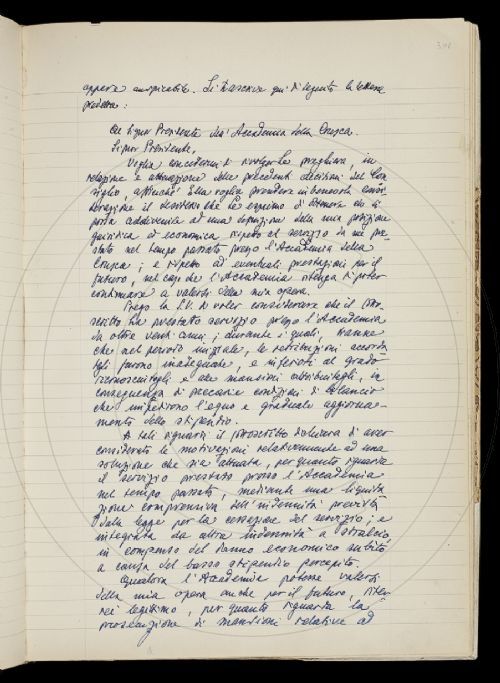 appare auspicabile. Si trascrive qui di seguito la lettera
predetta:
Al Signor Presidente dell'Accademia della Crusca.
Signor Presidente,
Voglia concedermi di rivolgerle preghiera, in
relazione e attuazione delle precedenti decisioni del Con
siglio, affinché Ella voglia prendere in benevola consi
derazione il desiderio che Le esprimo di ottenere che si
possa addivenire ad una definizione della mia posizione
giuridica ed economica rispetto al servizio da me pre
stato nel tempo passato presso l'Accademia della
Crusca; e rispetto ad eventuali prestazioni per il
futuro, nel caso che l'Accademia ritenga di poter
continuare a valersi della mia opera.
Prego la S.V. di voler considerare che il sotto
scritto ha prestato servizio presso l'Accademia
da oltre venti anni; durante i quali, tranne
che nel periodo iniziale, le retribuzioni accorda
tegli furono inadeguate, e inferiori al grado
riconosciutogli e alle mansioni attribuitegli, in
conseguenza di precarie condizioni di bilancio
che impedirono l'equo e graduale aggiorna-
mento dello stipendio.
A tali riguardi il sottoscritto dichiara di aver
considerato le motivazioni relativamente ad una
soluzione che sia attuata, per quanto riguarda
il servizio prestato presso l'Accademia
nel tempo passato, mediante una liquida
zione comprensiva dell'indennità prevista
dalla legge per la cessazione del servizio; e
integrata da altra indennità a stralcio,
in compenso del danno economico subìto
a causa del basso stipendio percepito.
Qualora l'Accademia potesse valersi
della mia opera anche per il futuro, riter
rei legittimo, per quanto riguarda la
prosecuzione di mansioni relative ad